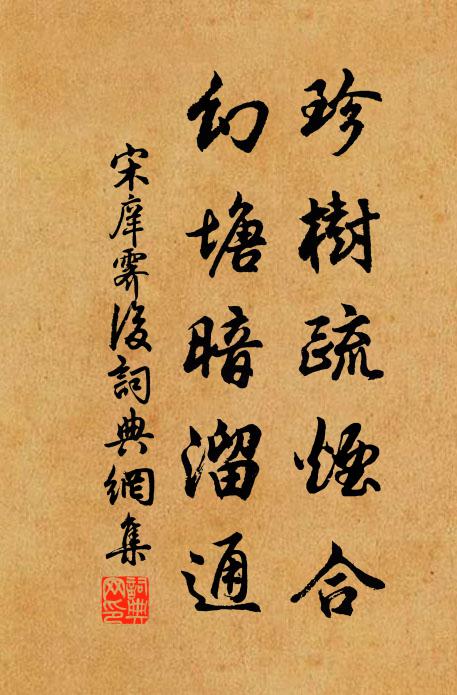 珍樹疏煙合
幻塘暗溜通
宋庠霽後詞典網集
詞典
网印